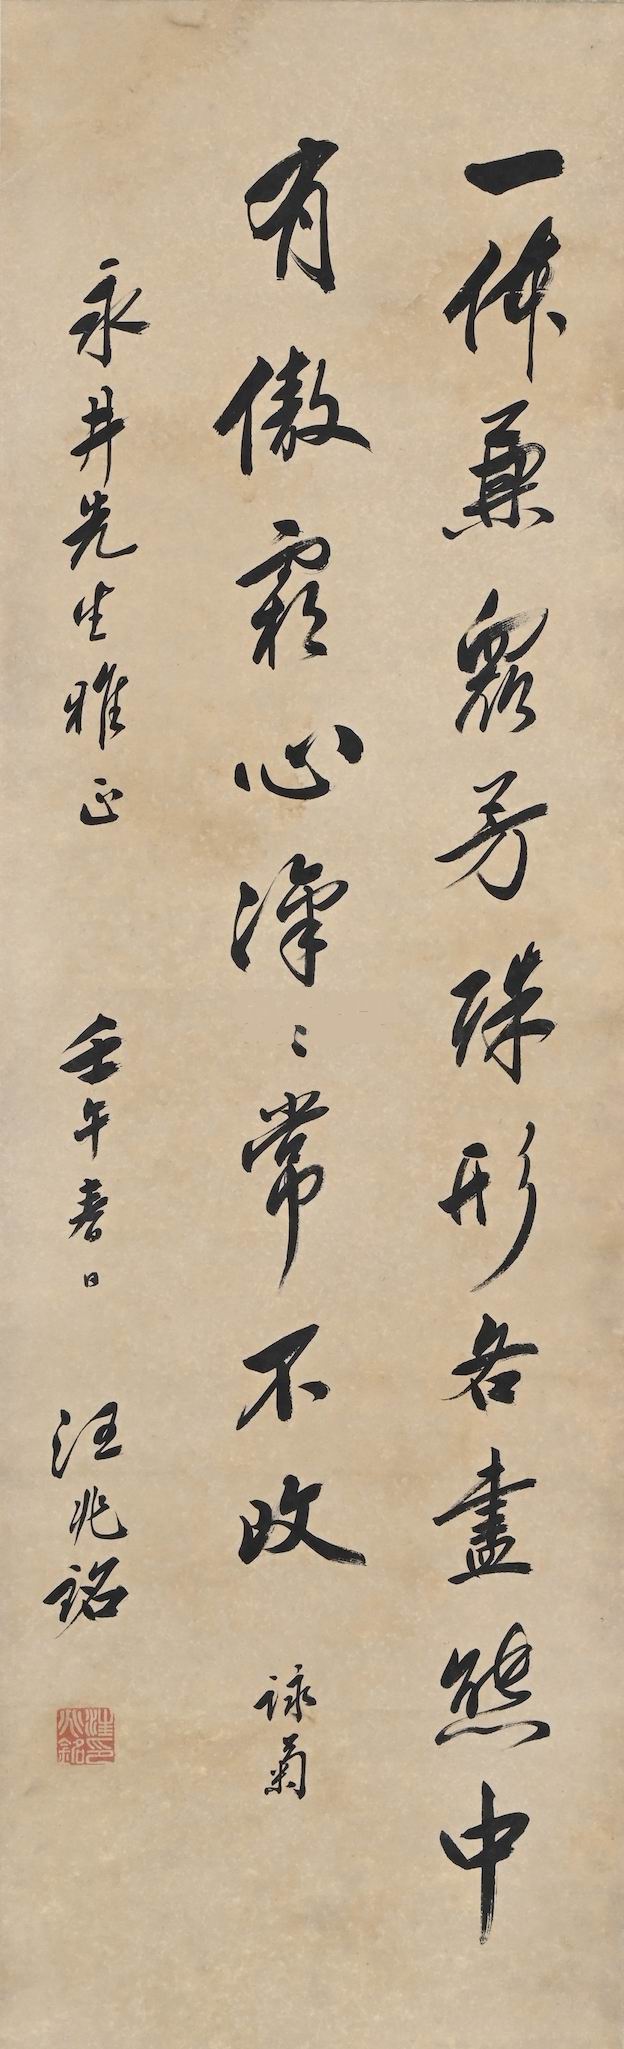 一体兼众芳殊形各尽態中
有傲霜心凜〻常不改
詠菊
永井先生雅正
壬午春日
汪兆銘
汪兆銘印